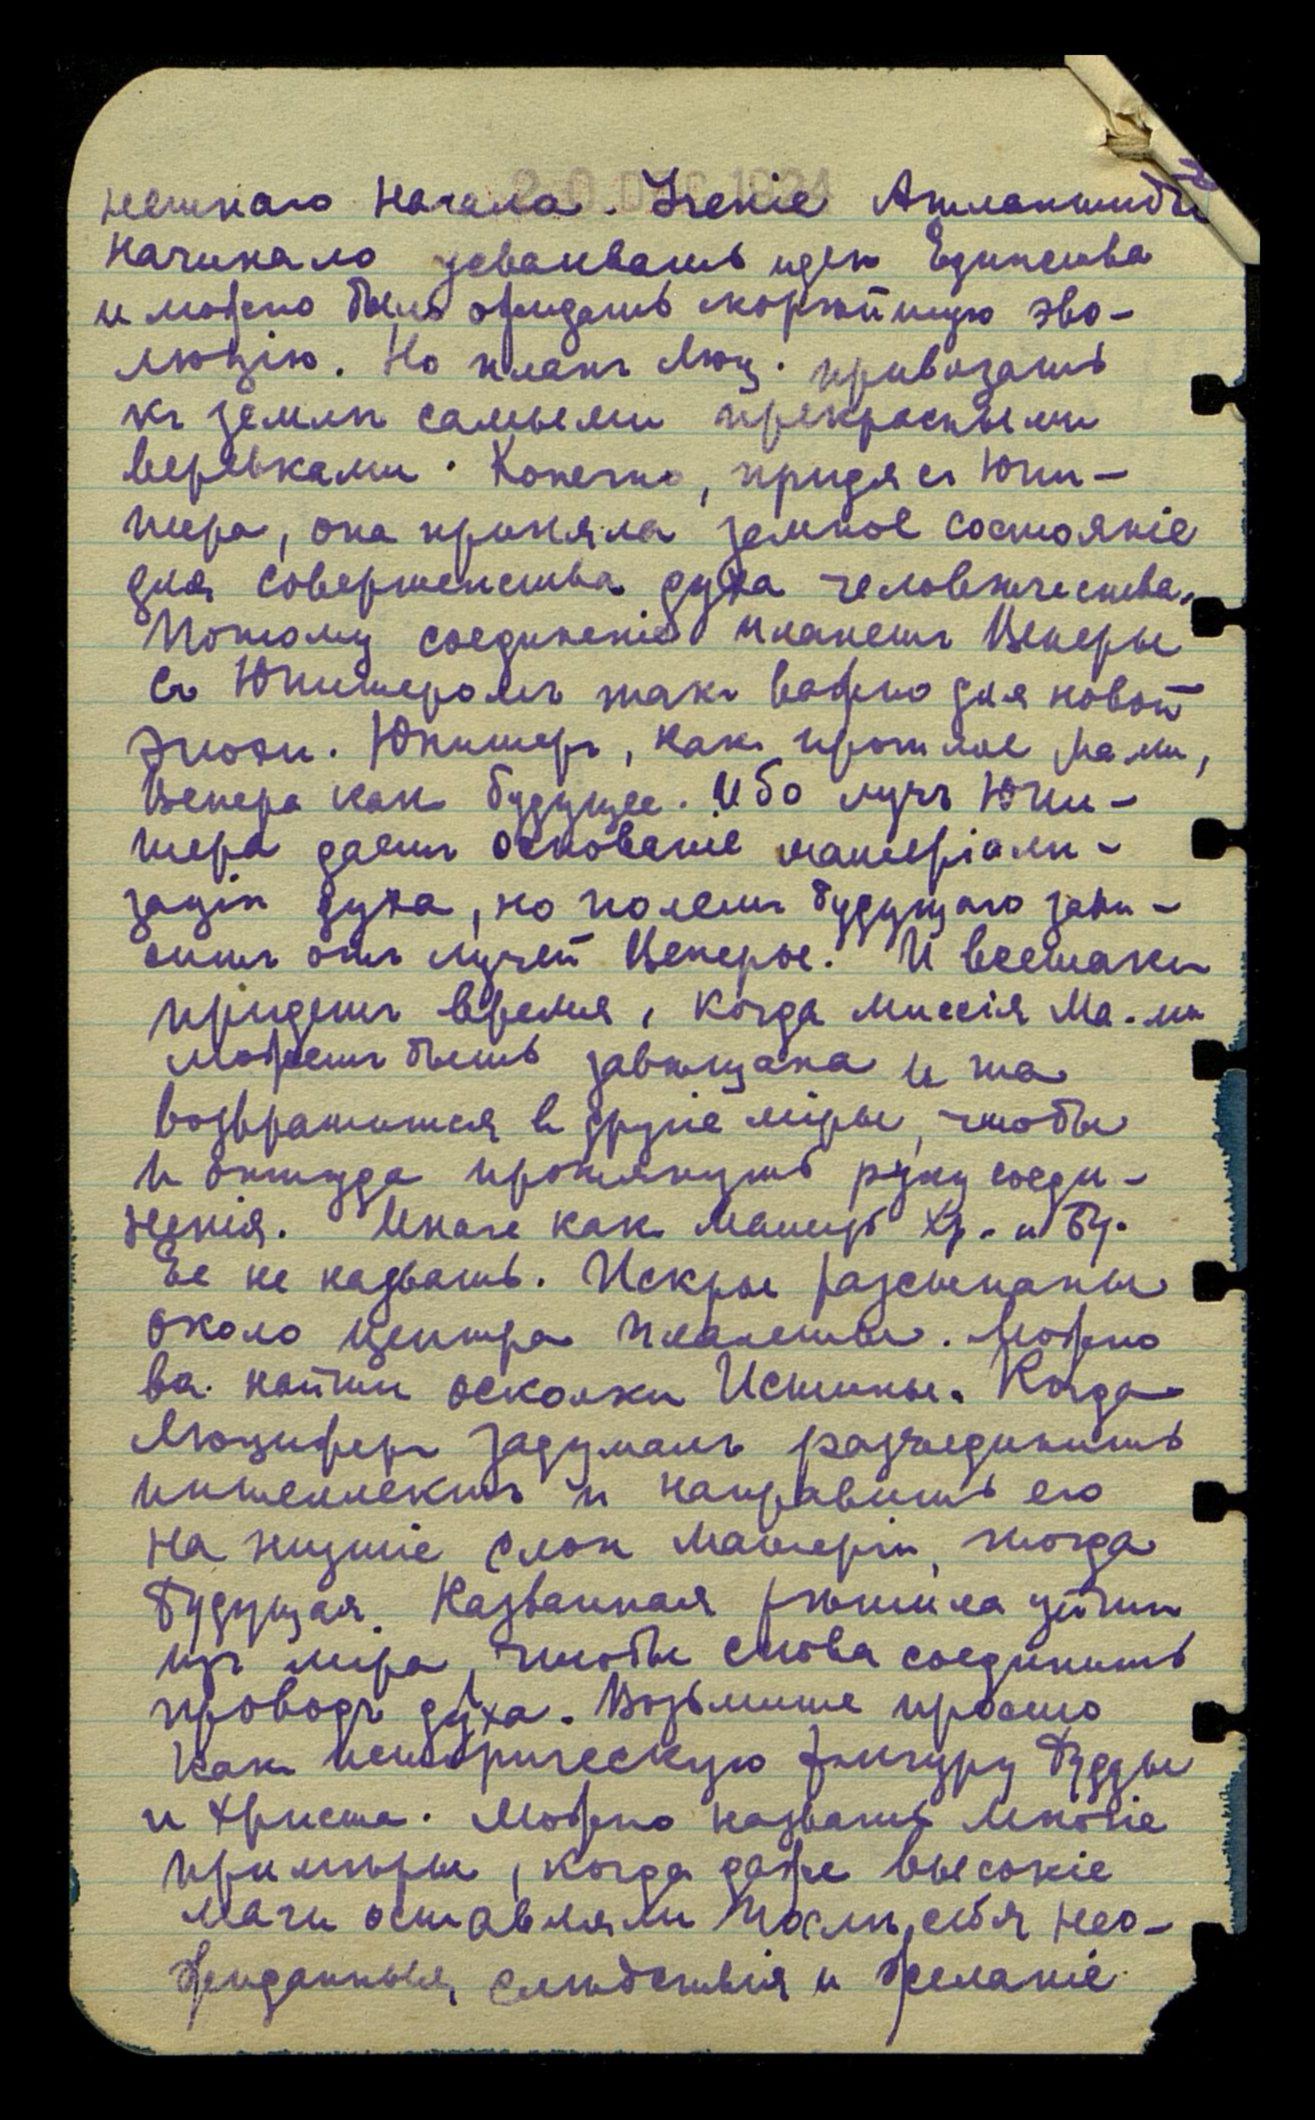 20 DEC 1924
нешнаго Начала. Ученіе Атлантиды
начинало усваивать идею Единства
и можно было ожидать скорѣйшую эво-
люцію. Но планъ Люц. привязать
къ землѣ самыми прекрасными
веревками. Конечно, придя съ Юпи-
тера, она приняла земное состояніе
для совершенства духа человѣчества.
Потому соединеніе планетъ Венеры
съ Юпитеромъ такъ важно для новой
эпохи. Юпитеръ, какъ прошлое Ма. ми,
Венера какъ будущее. Ибо лучъ Юпи-
тера даетъ основаніе матеріали-
заціи духа, но полетъ будущаго зави-
ситъ отъ лучей Венеры. И всетаки
придетъ время, когда миссія Ма. ми
можетъ быть завѣщана и та
возвратится въ другіе міры, чтобы
и оттуда протянуть руку соеди-
ненія. Иначе какъ Матерь Хр. и Бу.
Ее не назвать. Искры разсыпаны
около центра планеты. Можно
ва. найти осколки Истины. Когда
Люциферъ задумалъ разъединить
интеллектъ и направить его
на низшіе слои матеріи, тогда
будущая Названная рѣшила уйти
изъ міра, чтобы снова соединить
проводъ духа. Возьмите просто
какъ историческую фигуру Будды
и Христа. Можно назвать многіе
примѣры, когда даже высокіе
маги оставляли послѣ себя нео-
жиданныя слѣдствія и желаніе